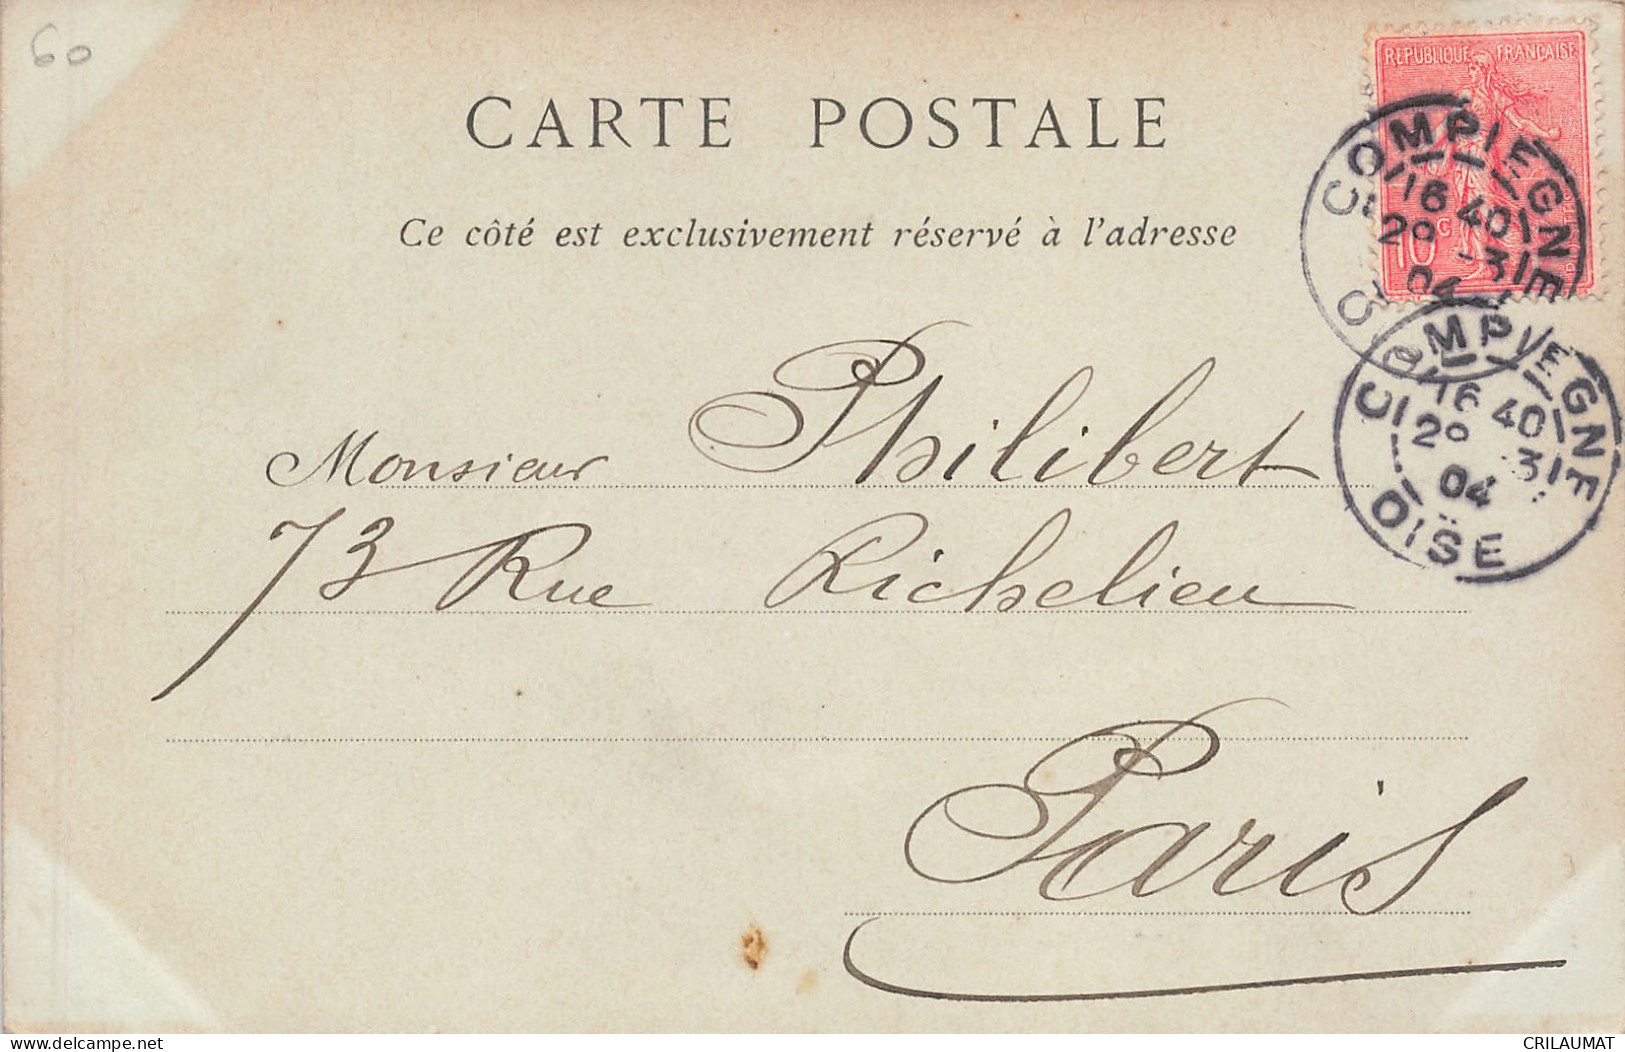 60
CARTE POSTALE
Ce côté est exclusivement réservé à l'adresse
REPUBLIQUE FRANÇAISE
10 c
COMPIEGNE
16 40
29 -3
04
O
COMPIEGNE
16 40
29 -3
04
OISE
Monsieur Philibert
73 Rue Richelieu
Paris
delcampe.net
CRILAUMAT